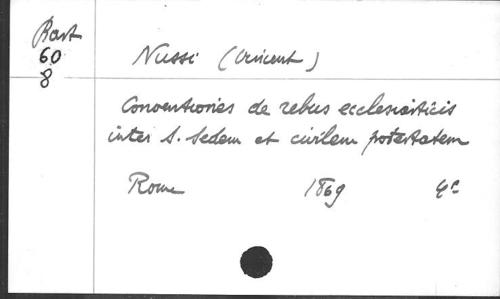 Rast
60
8
Nussi (Vincent)
Conventiones de rebus ecclesiasticis
inter S. Sedem et civilem potestatem
Rome 1869 4º